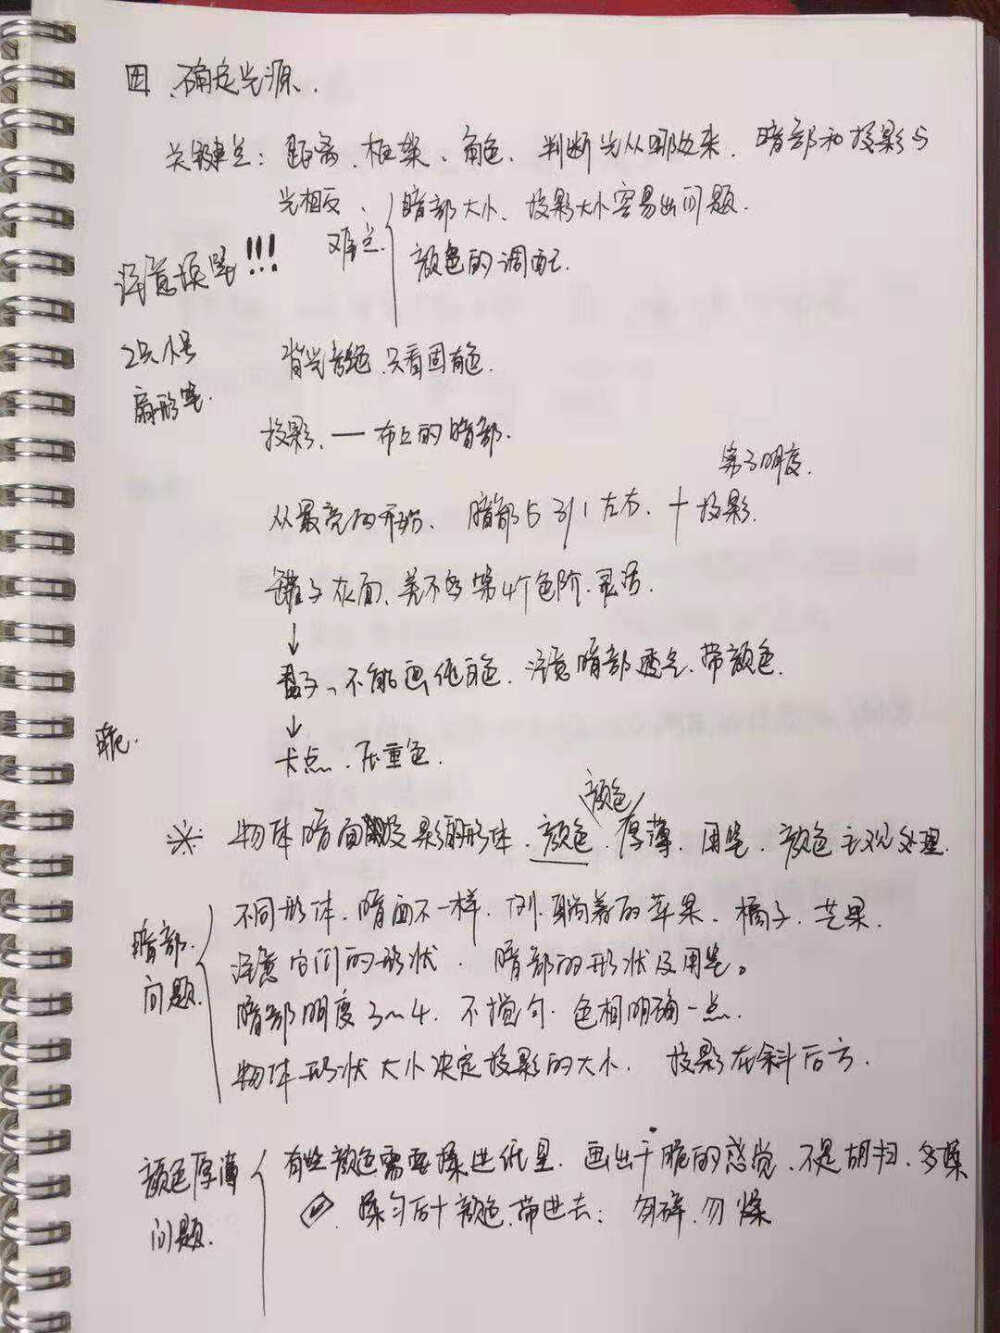 四、确定光源、
关键点：距离、框架、角色、判断光从哪边来、暗部和投影与
光相反、
难点
暗部大小、投影大小容易出问题.
颜色的调配.
注意换笔!!!
2只小号
扇形笔.
背光 只看固有色.
投影、一布上的暗部.
第3明度.
从最亮的开始、暗部占3/1左右、十投影.
罐子灰面、差不多第4个色阶.灵活.
↓
盘子、不能画纯白色、注意暗部透气、带颜色.
↓
卡点、压重色.
※ 物体暗面 投影的形体、颜色、厚薄、用笔、颜色主观处理.
颜色
暗部
问题.
不同形体、暗面不一样、例.躺着的苹果、橘子、芒果.
注意它们的形状、暗部的形状及用笔。
暗部明度3~4、不搅匀.色相明确一点.
物体形状大小决定投影的大小、投影在斜后方.
颜色厚薄
问题.
有些颜色需要揉进纸里、画出干脆的感觉、不是胡扫、多揉
揉匀后十颜色、带进去：勿碎、勿燥